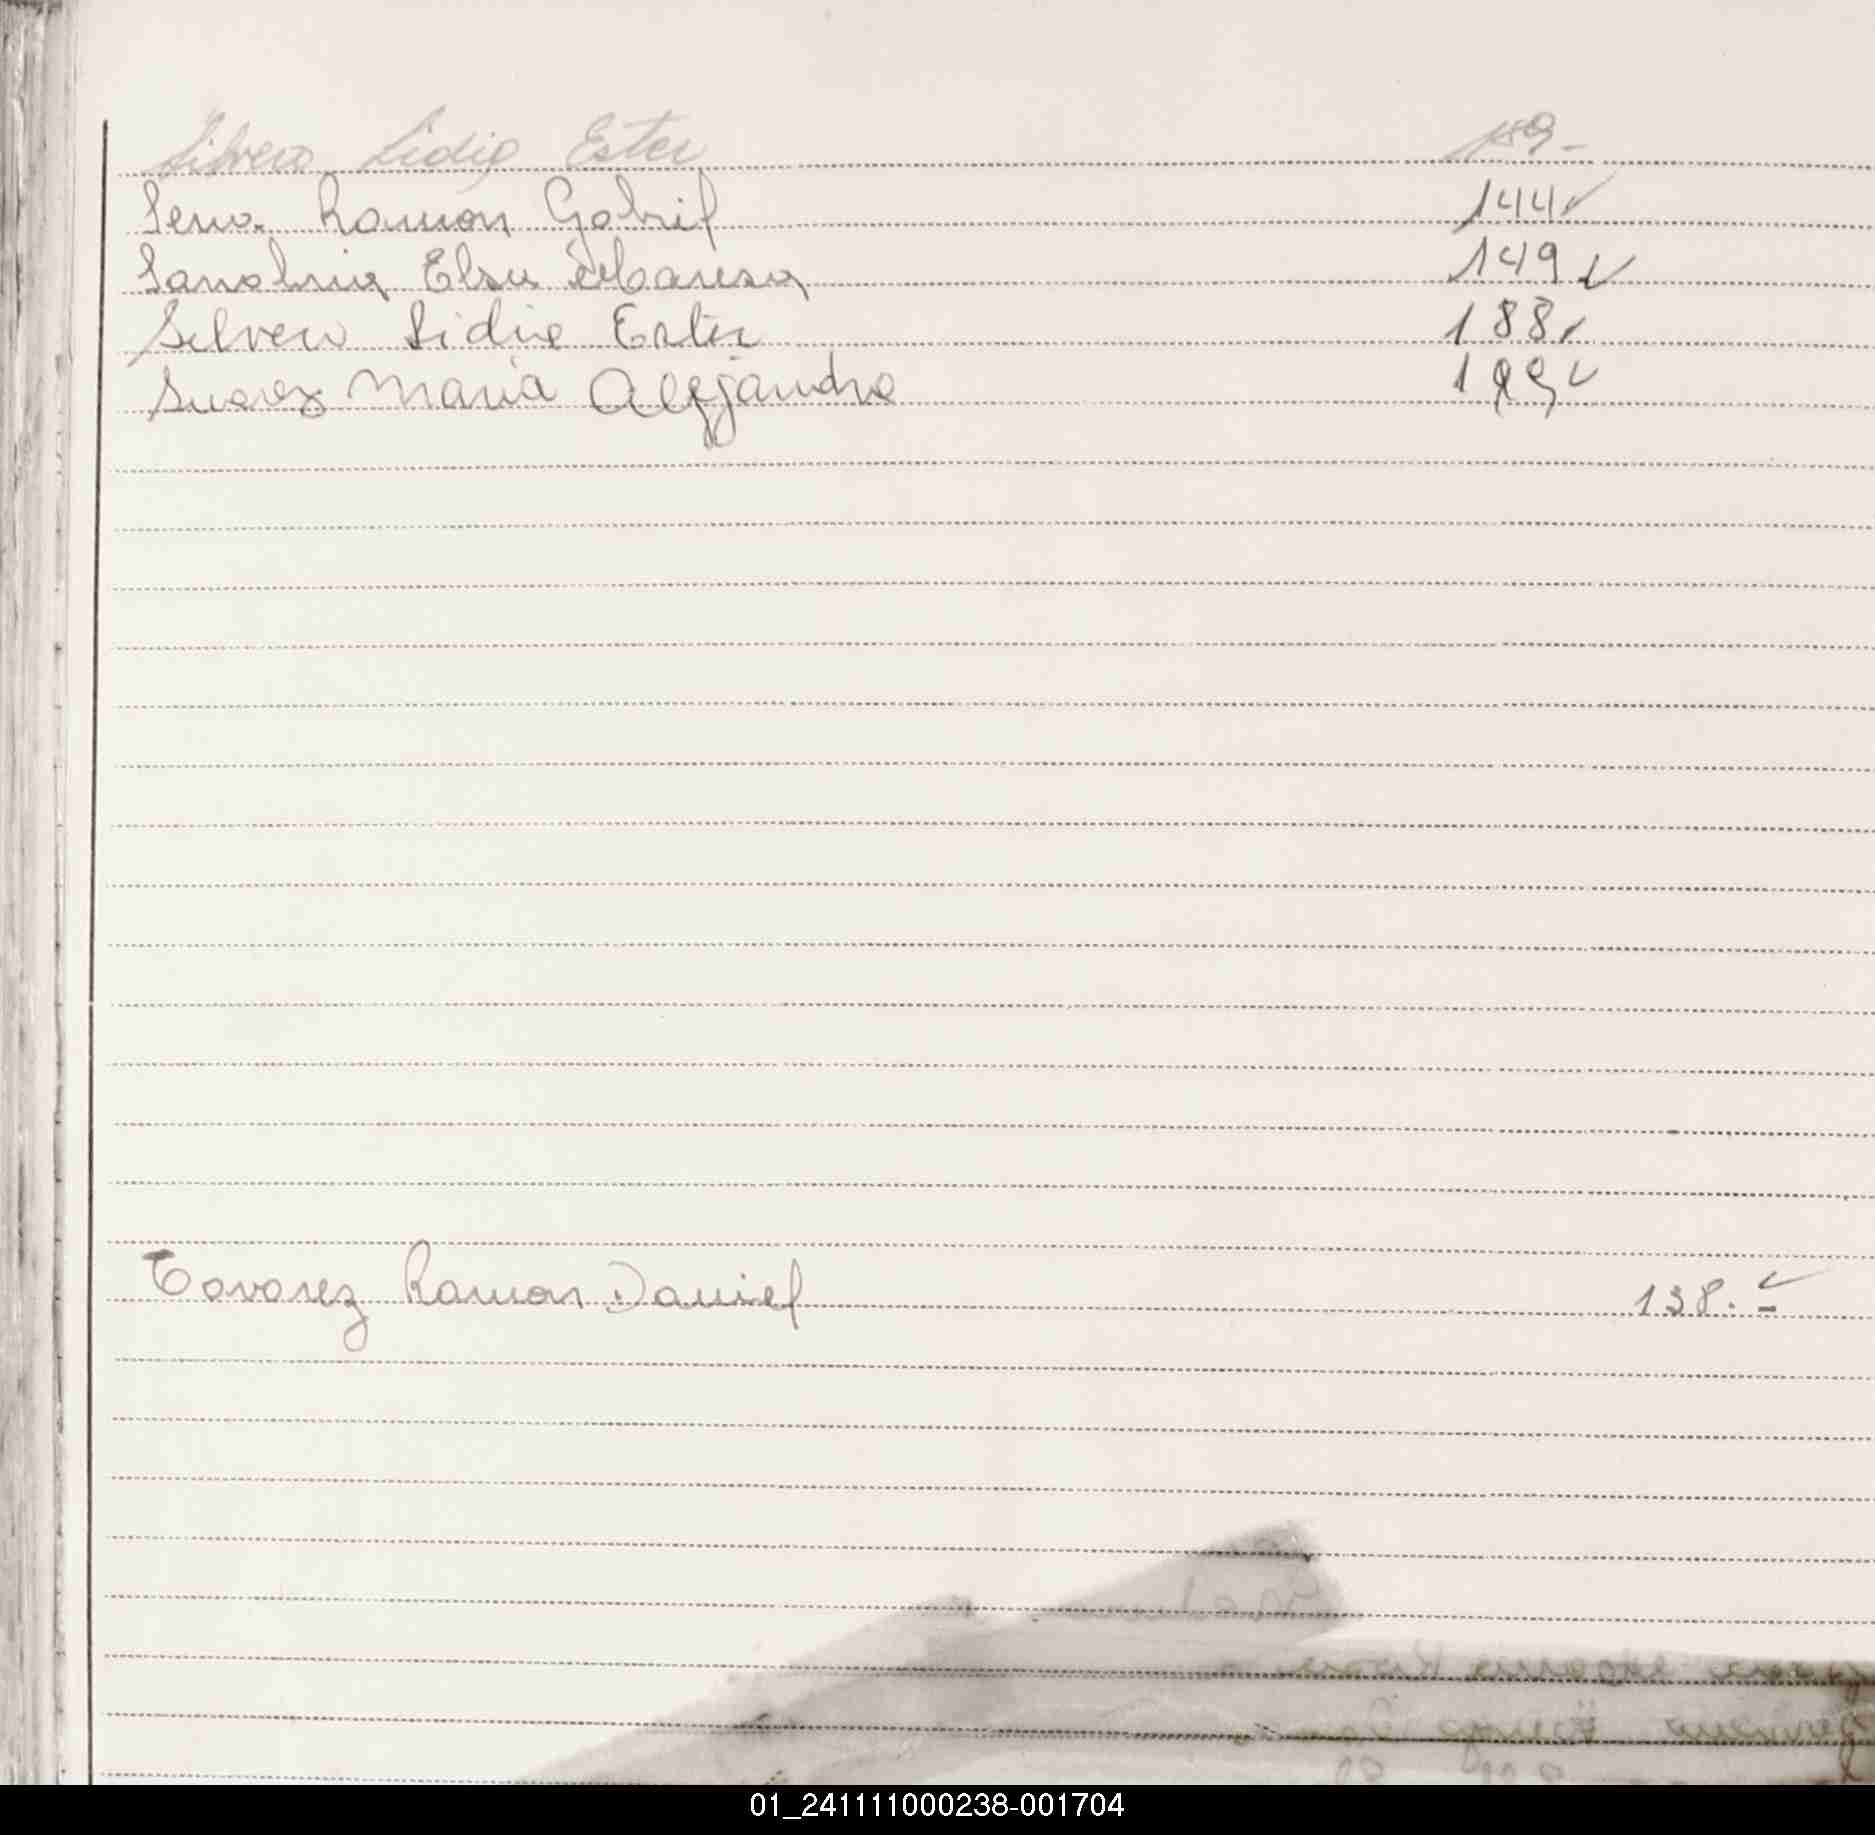 Silvero Lidia Ester 189-
Sena Ramon Gabriel 144 ✓
Sanabria Elsa 149 ✓
Silvero Lidia Ester 188 ✓
Suarez Maria Alejandra 199 ✓
Tavarez Ramon Daniel 138. ✓
01_241111000238-001704